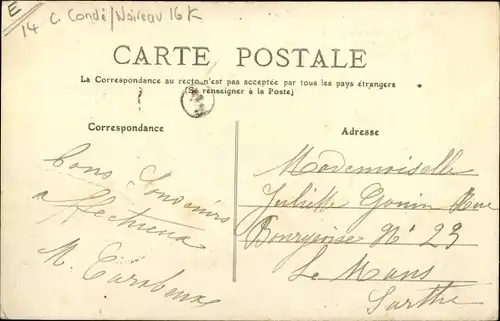 E
14
C. Condé/Noireau 16 K
CARTE POSTALE
La Correspondance au recto n'est pas acceptée par tous les pays étrangers
(Se renseigner à la Poste)
Correspondance
Adresse
Bons Souvenirs
affectueux
M.
Mademoiselle
Juliette Gouin Rue
Bourgeoise N° 23
Le Mans
Sarthe